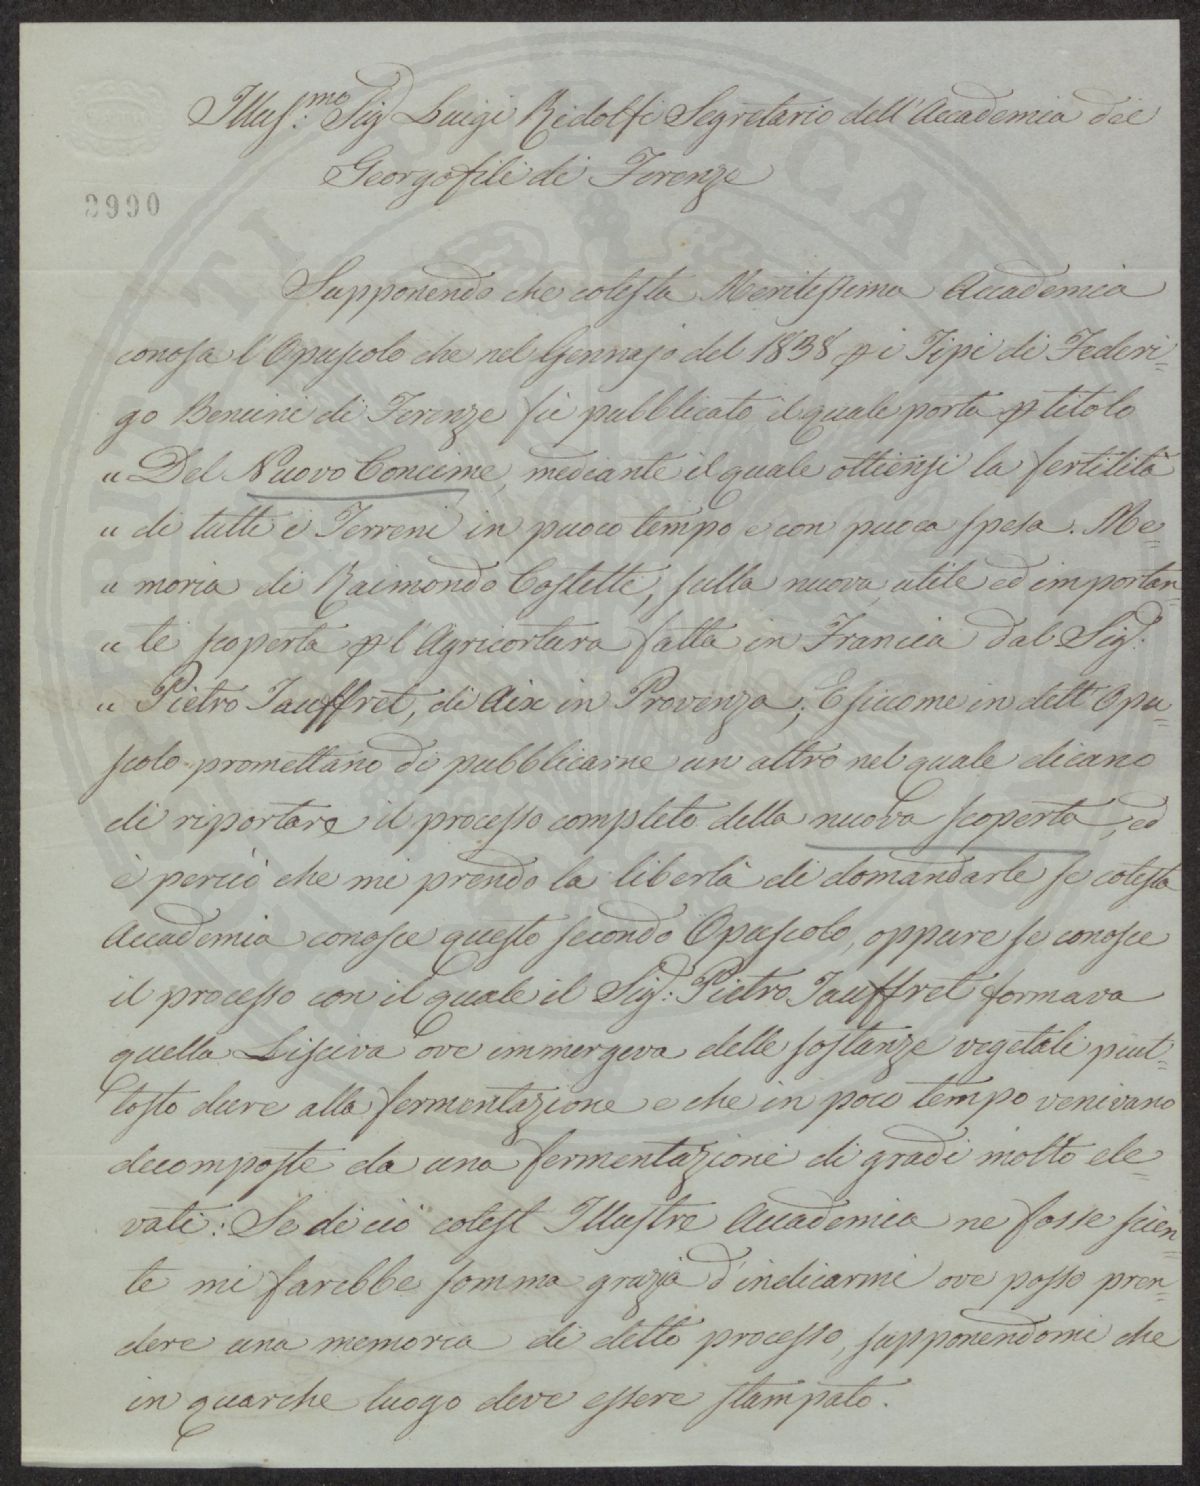 Illus.mo Sig Luigi Ridolfi Segretario dell'Accademia dei
Georgofili di Firenze
3990
Supponendo che cotesta Meritessima Accademia
conosa l'Opuscolo che nel Gennajo del 1838 p i Tipi di Federi=
go Bencini di Firenze fù pubblicato il quale porta p titolo
" Del Nuovo Concime, mediante il quale ottiensi la fertilità
" di tutti i Terreni in puoco tempo e con puoca spesa. Me=
" moria di Raimondo Costetti, sulla nuova, utile ed importan=
" te scoperta p l'Agricortura fatta in Francia dal Sig.
" Pietro Jauffret, di Aix in Provenza; E siccome in dett'Opu=
scolo promettano di pubblicarne un altro nel quale dicano
di riportare il processo completo della nuova scoperta, ed
è perciò che mi prendo la libertà di domandarle se cotesta
Accademia conosce questo secondo Opuscolo, oppure se conosce
il processo con il quale il Sig. Pietro Jauffret formava
quella Lisciva ove immergeva delle sostanze vegetali piut=
tosto dure alla fermentazione e che in poco tempo venivano
decomposte da una fermentazione di gradi molto ele=
vati: Se di ciò cotest Illustre Accademia ne fosse scien=
te mi farebbe somma grazia d'indicarmi ove posso pren=
dere una memoria di detto processo, supponendomi che
in quarche luogo deve essere stampato.